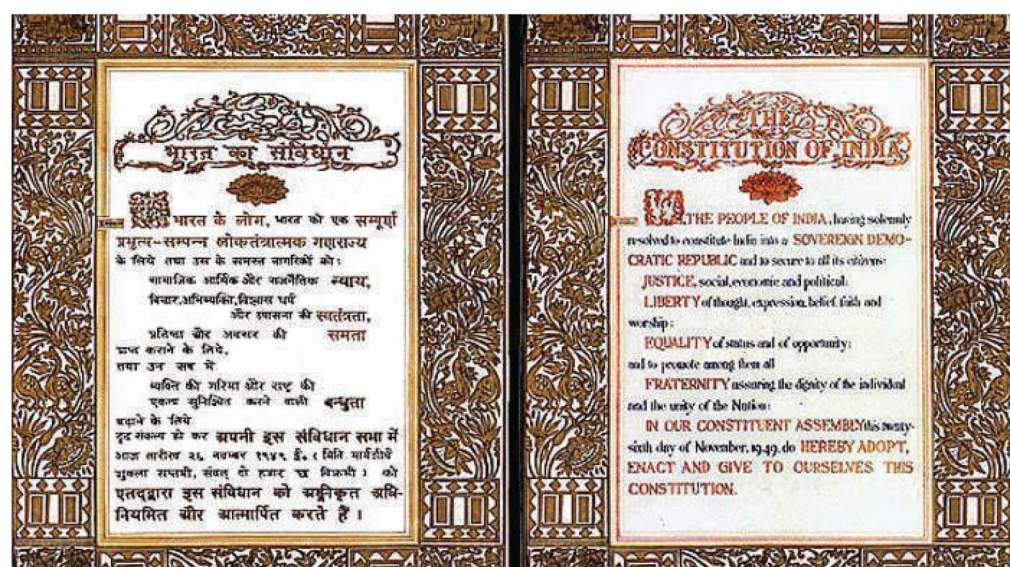 भारत का संविधान
हम, भारत के लोग, भारत को एक सम्पूर्ण
प्रभुत्व-सम्पन्न लोकतंत्रात्मक गणराज्य
के लिये तथा उस के समस्त नागरिकों को:
सामाजिक आर्थिक और राजनैतिक न्याय,
विचार, अभिव्यक्ति, विश्वास धर्म
और उपासना की स्वतंत्रता,
प्रतिष्ठा और अवसर की समता
प्राप्त कराने के लिये,
तथा उन सब में
व्यक्ति की गरिमा और राष्ट्र की
एकता सुनिश्चित करने वाली बन्धुता
बढ़ाने के लिये
दृढ़ संकल्प हो कर अपनी इस संविधान सभा में
आज तारीख २६ नवम्बर १९४९ ई. (मिति मार्गशीर्ष
शुक्ला सप्तमी, संवत् दो हजार छ विक्रमी) को
एतद्द्वारा इस संविधान को अङ्गीकृत अधि-
नियमित और आत्मार्पित करते हैं।
THE
CONSTITUTION OF INDIA
WE, THE PEOPLE OF INDIA, having solemnly
resolved to constitute India into a SOVEREIGN DEMO-
CRATIC REPUBLIC and to secure to all its citizens:
JUSTICE, social, economic and political;
LIBERTY of thought, expression, belief, faith and
worship;
EQUALITY of status and of opportunity;
and to promote among them all
FRATERNITY assuring the dignity of the individual
and the unity of the Nation;
IN OUR CONSTITUENT ASSEMBLY this twenty-
sixth day of November, 1949, do HEREBY ADOPT,
ENACT AND GIVE TO OURSELVES THIS
CONSTITUTION.